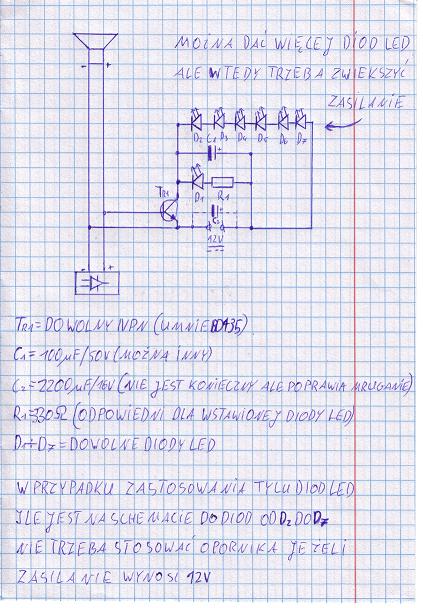 MOŻNA DAĆ WIĘCEJ DIOD LED
ALE WTEDY TRZEBA ZWIEKSZYĆ
ZASILANIE
- +
D2 D3 D4 D5 D6 D7
C1 +
D1 R1
TR1
+
C2
12V
- +
TR1 = DOWOLNY NPN (UMNIE BD135)
C1 = 100µF/50V (MOŻNA INNY)
C2 = 2200µF/16V (NIE JEST KONIECZNY ALE POPRAWIA MRUGANIE)
R1 = 330Ω (ODPOWIEDNI DLA WSTAWIONEJ DIODY LED)
D1÷D7 = DOWOLNE DIODY LED
W PRZYPADKU ZASTOSOWANIA TYLU DIOD LED
ILE JEST NA SCHEMACIE DO DIOD OD D2 DO D7
NIE TRZEBA STOSOWAĆ OPORNIKA JEŻELI
ZASILANIE WYNOSI 12V